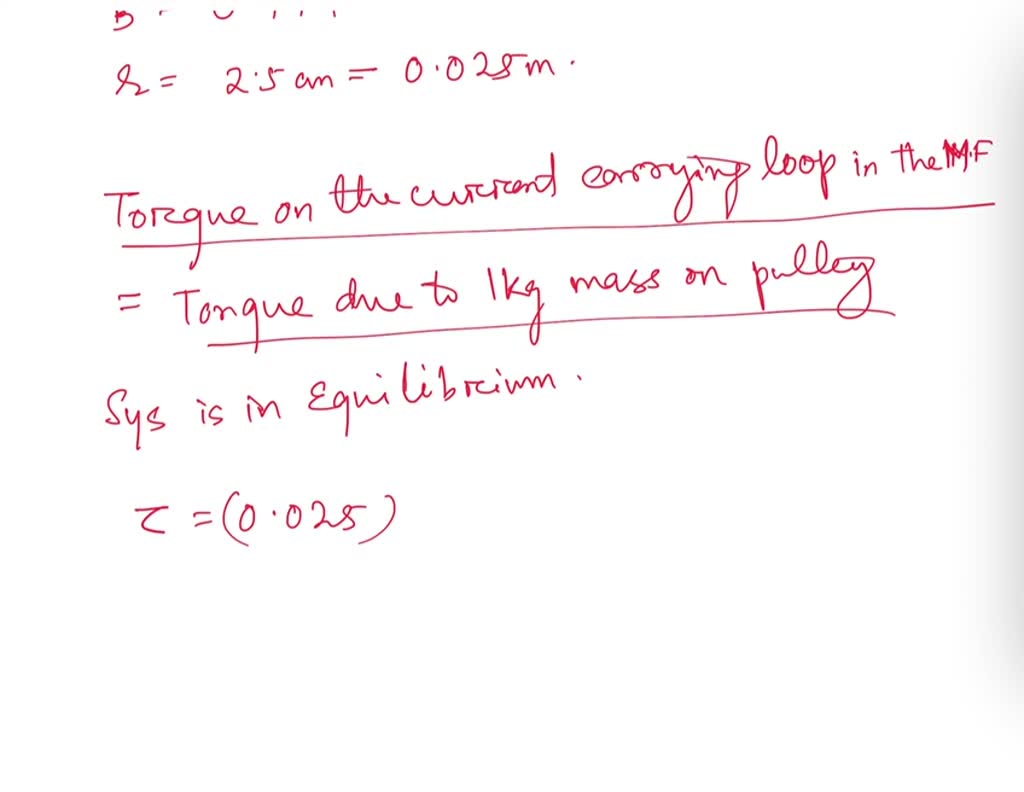 r = 2.5 cm = 0.025 m.
Torque on the current carrying loop in the M.F
= Torque due to 1kg mass on pulley
Sys is in Equilibrium.
τ = (0.025)